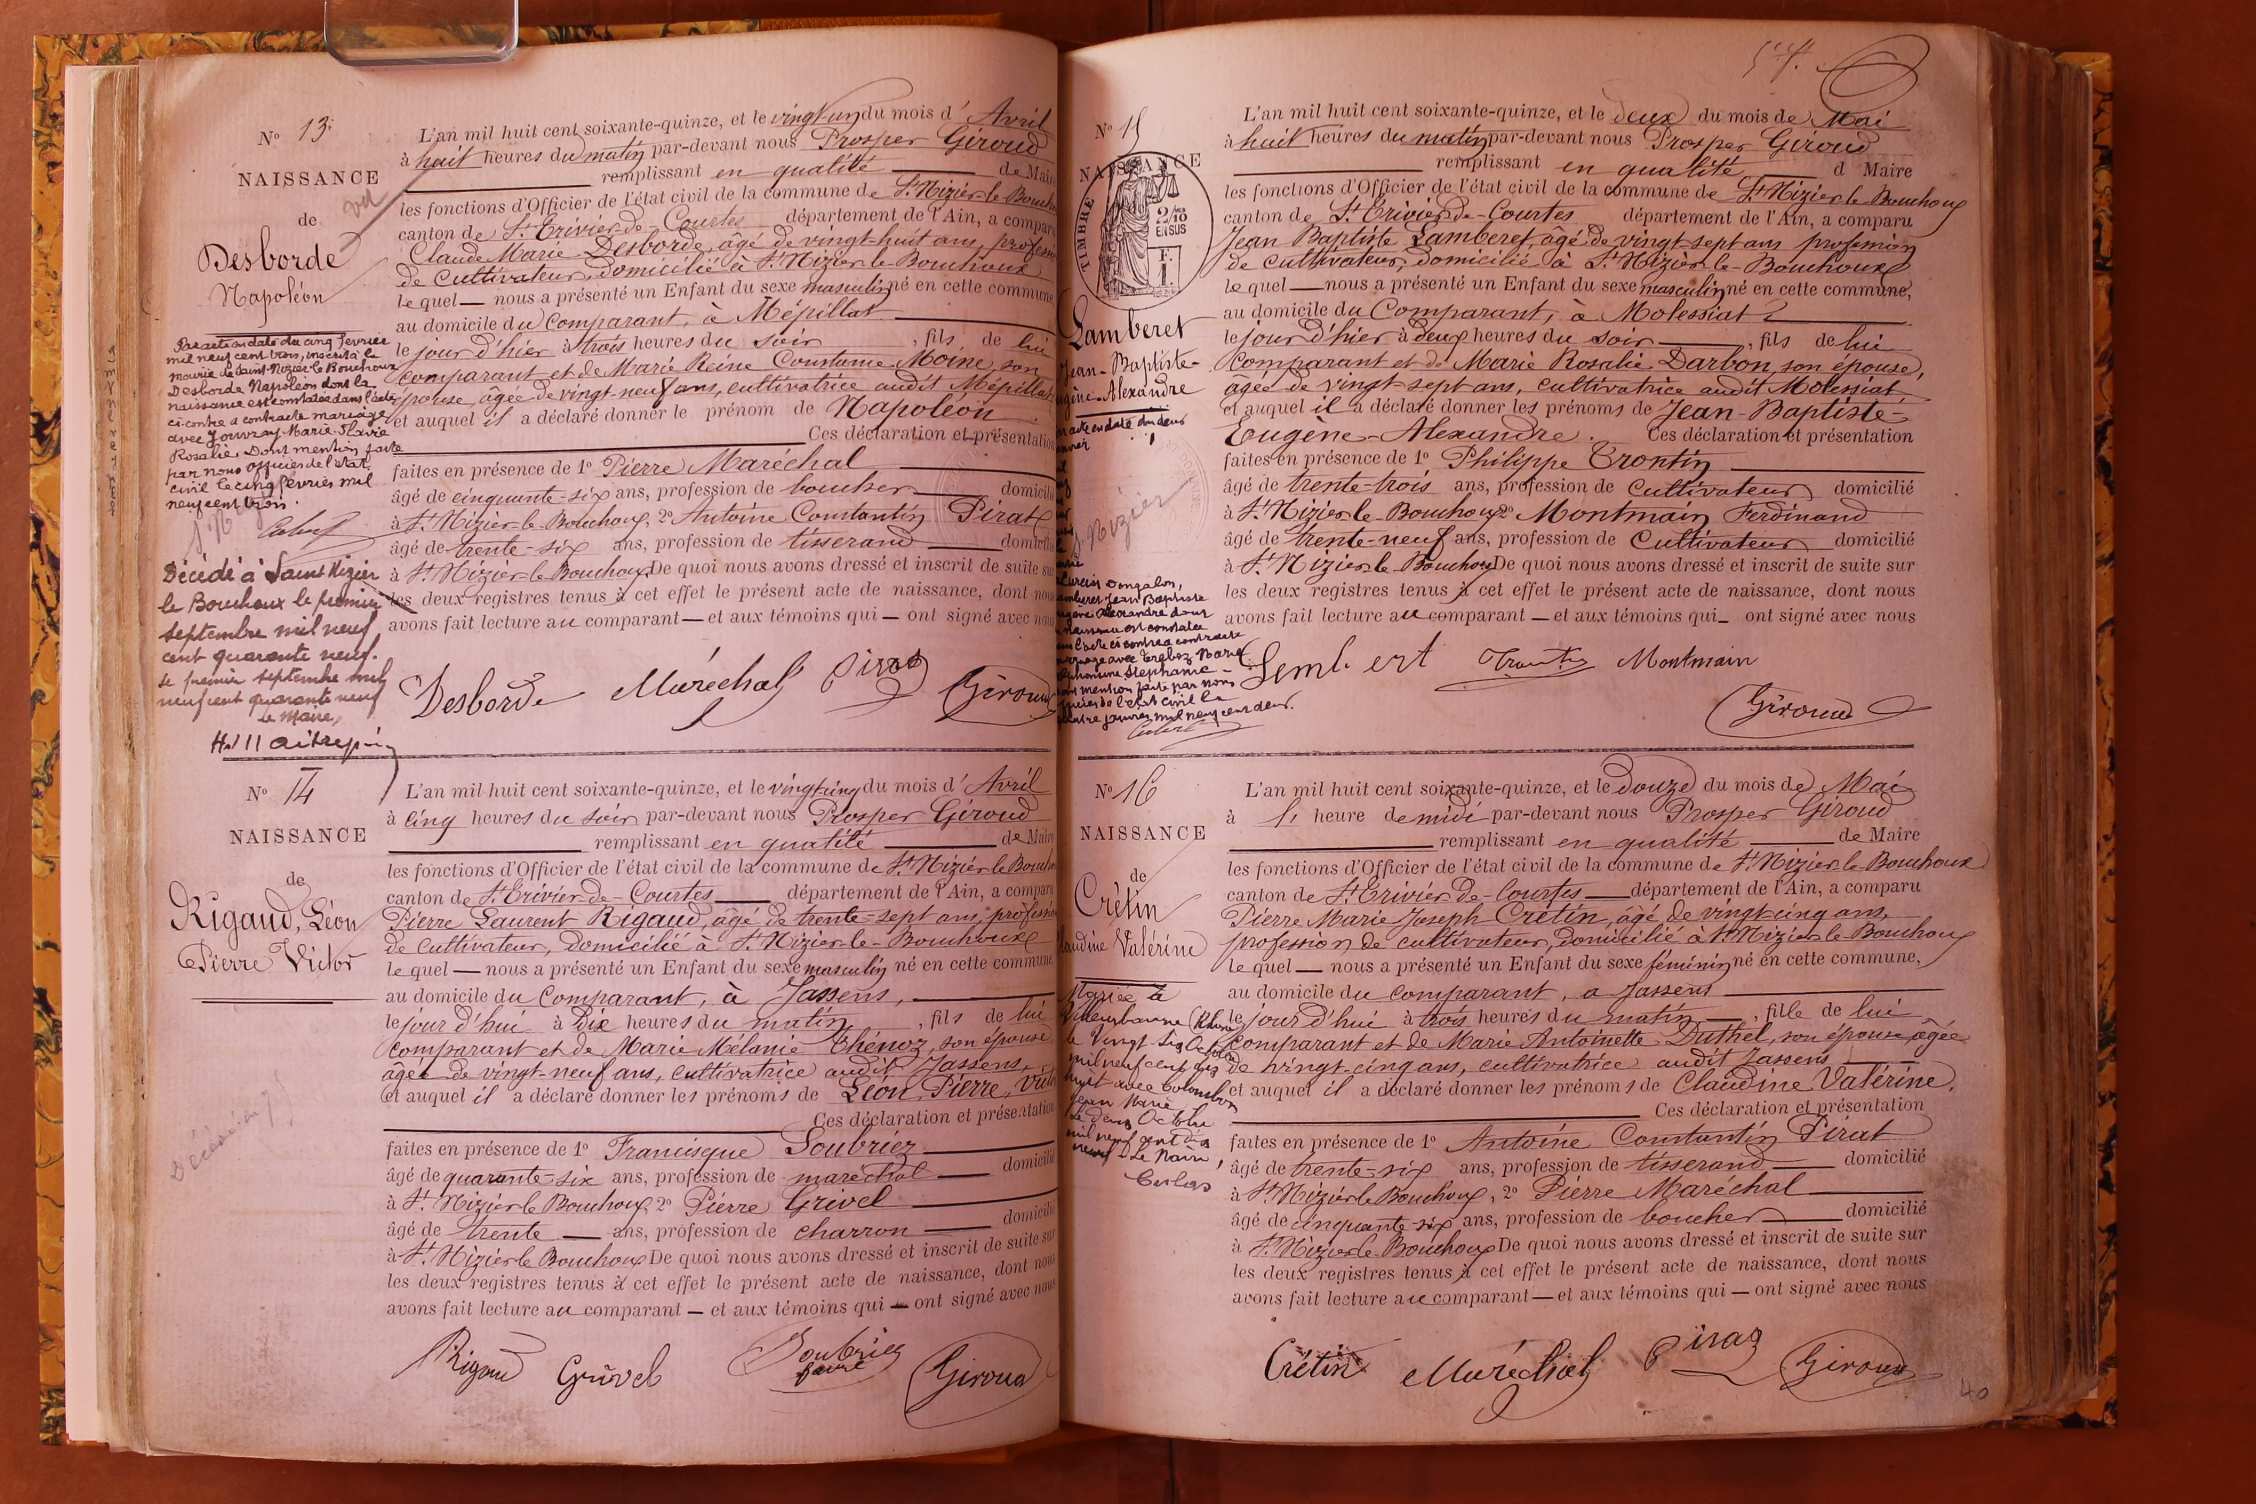 N° 13
NAISSANCE
de
Desborde
Napoléon
Par acte en date du cinq février
mil neuf cent trois, inscrit à la
mairie de Saint-Nizier-le-Bouchoux
Desborde Napoléon dont la
naissance est constatée dans l'acte
ci-contre a contracté mariage
avec Jouvray Marie Flavie
Rosalie. Dont mention faite
par nous officier de l'état
civil le cinq février mil
neuf cent trois.
Décédé à Saint Nizier
le Bouchoux le premier
septembre mil neuf
cent quarante neuf.
Le premier septembre mil
neuf cent quarante neuf
Le Maire,
L'an mil huit cent soixante-quinze, et le vingt-un du mois d'Avril
à huit heures du matin par-devant nous Prosper Giroud
remplissant en qualité de Maire
les fonctions d'Officier de l'état civil de la commune de St Nizier-le-Bouch
canton de St Trivier-de-Courtes département de l'Ain, a comparu
Claude Marie Desborde, âgé de vingt-huit ans, profession
de cultivateur, domicilié à St Nizier-le-Bouchoux
lequel nous a présenté un Enfant du sexe masculin né en cette commune
au domicile du Comparant, à Mépillat
le jour d'hier à trois heures du soir, fils de lui
comparant et de Marie Reine Constance Moine, son
épouse, âgée de vingt-neuf ans, cultivatrice audit Mépillat
et auquel il a déclaré donner le prénom de Napoléon
Ces déclaration et présentation
faites en présence de 1° Pierre Maréchal
âgé de cinquante-six ans, profession de boucher domicilié
à St Nizier-le-Bouchoux, 2° Antoine Constantin Pirat
âgé de trente-six ans, profession de tisserand domicilié
à St Nizier-le-Bouchoux De quoi nous avons dressé et inscrit de suite sur
les deux registres tenus à cet effet le présent acte de naissance, dont nous
avons fait lecture au comparant et aux témoins qui ont signé avec nous
Desborde Maréchal Pirat Giroud
N° 14
NAISSANCE
de
Rigaud, Léon
Pierre Victor
Décédé en
L'an mil huit cent soixante-quinze, et le vingt-cinq du mois d'Avril
à cinq heures du soir par-devant nous Prosper Giroud
remplissant en qualité de Maire
les fonctions d'Officier de l'état civil de la commune de St Nizier-le-Bouch
canton de St Trivier-de-Courtes département de l'Ain, a comparu
Pierre Laurent Rigaud, âgé de trente-sept ans, profession
de cultivateur, domicilié à St Nizier-le-Bouchoux
lequel nous a présenté un Enfant du sexe masculin né en cette commune
au domicile du Comparant, à Jassens,
le jour d'hui à dix heures du matin, fils de lui
comparant et de Marie Mélanie Thénoz, son épouse
âgée de vingt-neuf ans, cultivatrice audit Jassens,
et auquel il a déclaré donner les prénoms de Léon, Pierre, Victor
Ces déclaration et présentation
faites en présence de 1° Francisque Soubriez
âgé de quarante-six ans, profession de maréchal domicilié
à St Nizier-le-Bouchoux, 2° Pierre Grivel
âgé de trente ans, profession de charron domicilié
à St Nizier-le-Bouchoux De quoi nous avons dressé et inscrit de suite sur
les deux registres tenus à cet effet le présent acte de naissance, dont nous
avons fait lecture au comparant et aux témoins qui ont signé avec nous
Rigaud Grivel Soubriez Giroud
N° 15
NAISSANCE
TIMBRE
2/10
EN SUS
F.
1
Lamberet
Jean-Baptiste-
Eugène-Alexandre
par acte en date du deux
janvier
St Nizier
Lamberet Jean Baptiste
Eugène Alexandre dont
la naissance est constatée
dans l'acte ci-contre a contracté
mariage avec Treboz Marie
Philomène Stéphanie
dont mention faite par nous
officier de l'état civil le
quatre janvier mil neuf cent deux.
L'an mil huit cent soixante-quinze, et le deux du mois de Mai
à huit heures du matin par-devant nous Prosper Giroud
remplissant en qualité d Maire
les fonctions d'Officier de l'état civil de la commune de St Nizier-le-Bouchoux
canton de St Trivier-de-Courtes département de l'Ain, a comparu
Jean Baptiste Lamberet, âgé de vingt-sept ans profession
de cultivateur, domicilié à St Nizier-le-Bouchoux
lequel nous a présenté un Enfant du sexe masculin né en cette commune,
au domicile du Comparant, à Molessiat
le jour d'hier à deux heures du soir, fils de lui
comparant et de Marie Rosalie Darbon, son épouse,
âgée de vingt-sept ans, cultivatrice audit Molessiat
et auquel il a déclaré donner les prénoms de Jean-Baptiste-
Eugène-Alexandre. Ces déclaration et présentation
faites en présence de 1° Philippe Trontin
âgé de trente-trois ans, profession de cultivateur domicilié
à St Nizier-le-Bouchoux 2° Montmain Ferdinand
âgé de trente-neuf ans, profession de cultivateur domicilié
à St Nizier-le-Bouchoux De quoi nous avons dressé et inscrit de suite sur
les deux registres tenus à cet effet le présent acte de naissance, dont nous
avons fait lecture au comparant et aux témoins qui ont signé avec nous
Lembert Trontin Montmain
Giroud
N° 16
NAISSANCE
de
Crétin
Claudine Valérine
Mariée à
Villeurbanne (Rhône)
le Vingt six Octobre
mil neuf cent dix
huit avec Colombon
Jean Marie
Octobre
mil neuf cent dix
neuf Le Maire,
L'an mil huit cent soixante-quinze, et le douze du mois de Mai
à heure de midi par-devant nous Prosper Giroud
remplissant en qualité de Maire
les fonctions d'Officier de l'état civil de la commune de St Nizier-le-Bouchoux
canton de St Trivier-de-Courtes département de l'Ain, a comparu
Pierre Marie Joseph Crétin, âgé de vingt-cinq ans,
profession de cultivateur, domicilié à St Nizier-le-Bouchoux
lequel nous a présenté un Enfant du sexe féminin né en cette commune,
au domicile du comparant, a Jassens
le jour d'hui à trois heures du matin, fille de lui
comparant et de Marie Antoinette Duthel, son épouse, âgée
de vingt-cinq ans, cultivatrice audit Jassens
et auquel il a déclaré donner les prénoms de Claudine Valérine.
Ces déclaration et présentation
faites en présence de 1° Antoine Constantin Pirat
âgé de trente-six ans, profession de tisserand domicilié
à St Nizier-le-Bouchoux, 2° Pierre Maréchal
âgé de cinquante-six ans, profession de boucher domicilié
à St Nizier-le-Bouchoux De quoi nous avons dressé et inscrit de suite sur
les deux registres tenus à cet effet le présent acte de naissance, dont nous
avons fait lecture au comparant et aux témoins qui ont signé avec nous
Crétin Maréchal Pirat Giroud
40